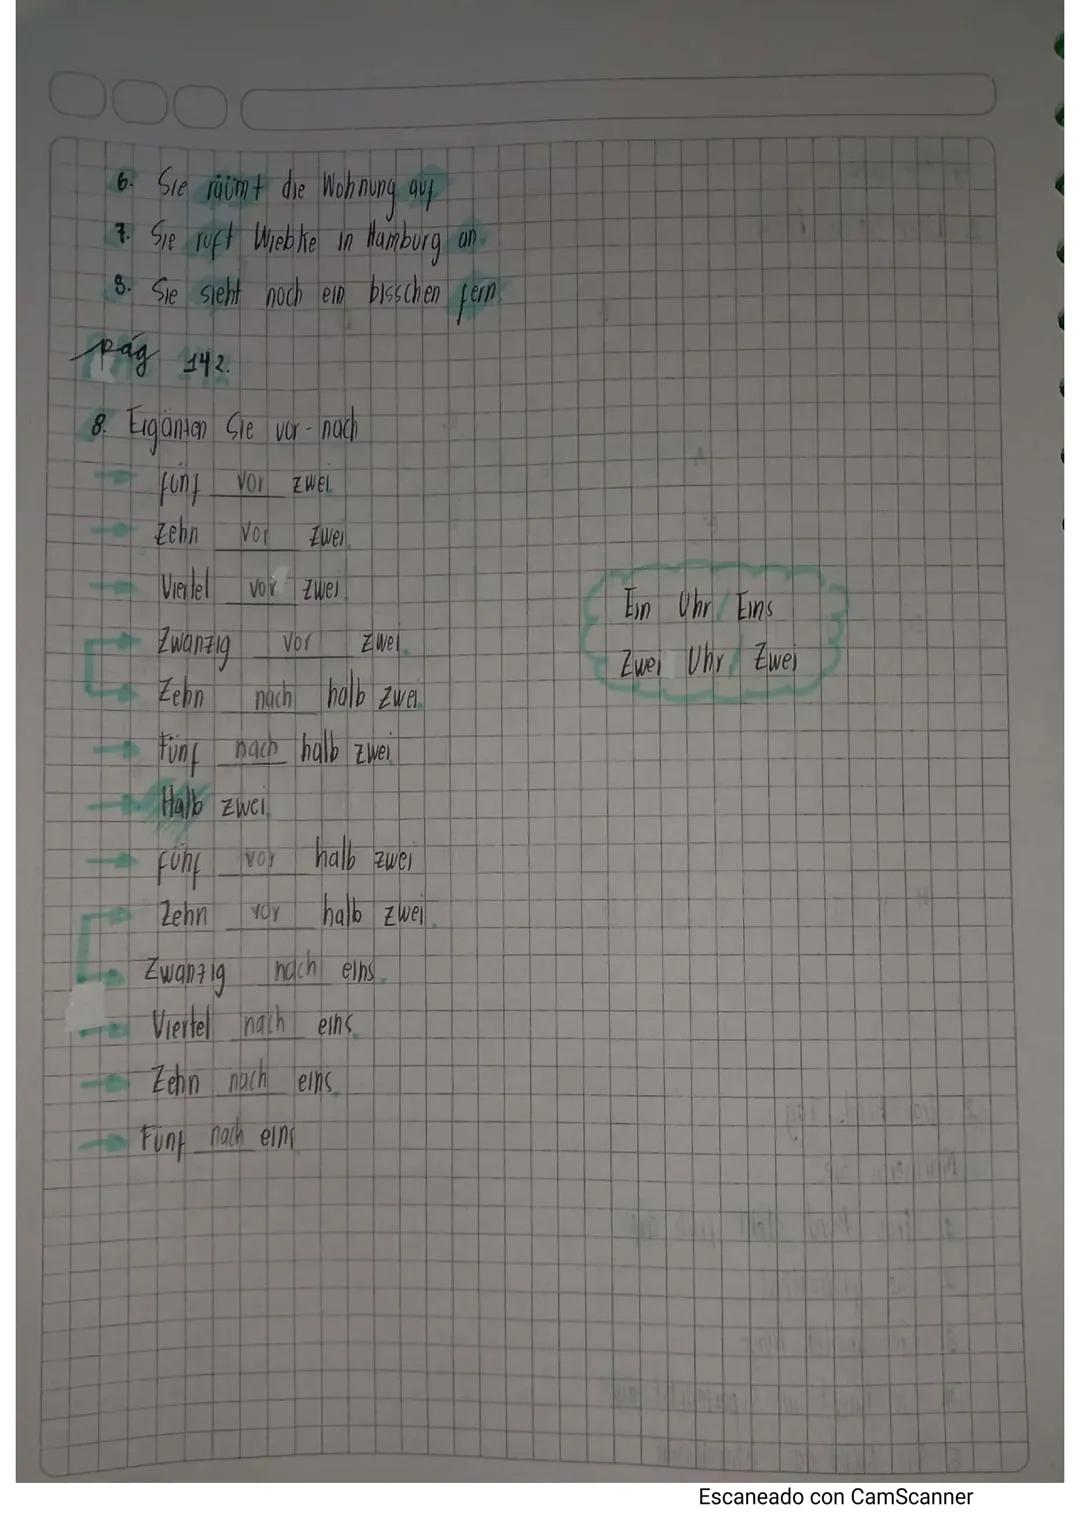 6. Sie räumt die Wohnung auf
7. Sie ruft Wiebke in Hamburg an.
8. Sie sieht noch ein bisschen fern
pág 142.
8. Ergänten Sie vor - nach
fünf vor zwei.
Zehn vor zwei.
Viertel vor zwei
Zwanzig vor zwei.
Zehn nach halb zwei.
Fünf nach halb zwei
Halb zwei.
fünf vor halb zwei
Zehn vor halb zwei.
Zwanzig nach eins.
Viertel nach eins.
Zehn nach eins.
Fünf nach eins
Ein Uhr / Eins
Zwei Uhr / Zwei
Escaneado con CamScanner